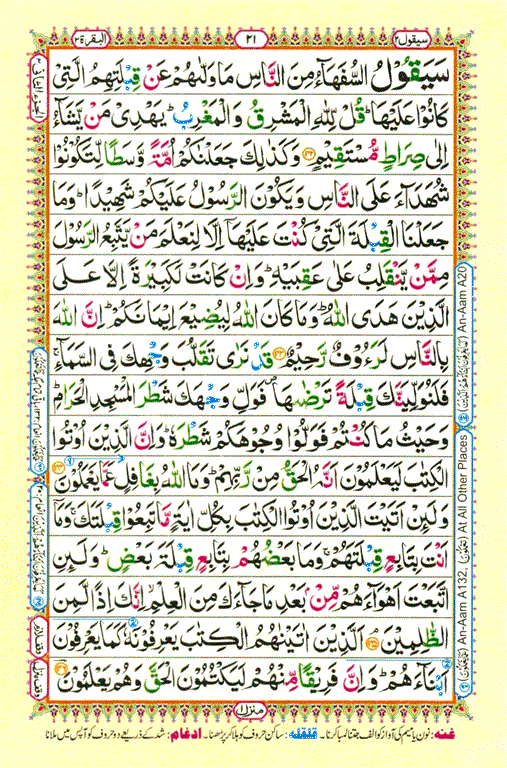 سيقول ٢
٢١
البقرة ٢
سَيَقُوْلُ السُّفَهَآءُ مِنَ النَّاسِ مَا وَلّٰىهُمْ عَنْ قِبْلَتِهِمُ الَّتِيْ
كَانُوْا عَلَيْهَا ؕ قُلْ لِّلّٰهِ الْمَشْرِقُ وَالْمَغْرِبُ ؕ يَهْدِيْ مَنْ يَّشَآءُ
اِلٰى صِرَاطٍ مُّسْتَقِيْمٍ ۝ وَكَذٰلِكَ جَعَلْنٰكُمْ اُمَّةً وَّسَطًا لِّتَكُوْنُوْا
شُهَدَآءَ عَلَى النَّاسِ وَيَكُوْنَ الرَّسُوْلُ عَلَيْكُمْ شَهِيْدًا ؕ وَمَا
جَعَلْنَا الْقِبْلَةَ الَّتِيْ كُنْتَ عَلَيْهَاۤ اِلَّا لِنَعْلَمَ مَنْ يَّتَّبِعُ الرَّسُوْلَ
مِمَّنْ يَّنْقَلِبُ عَلٰى عَقِبَيْهِ ؕ وَاِنْ كَانَتْ لَكَبِيْرَةً اِلَّا عَلَى
الَّذِيْنَ هَدَى اللّٰهُ ؕ وَمَا كَانَ اللّٰهُ لِيُضِيْعَ اِيْمَانَكُمْ ؕ اِنَّ اللّٰهَ
بِالنَّاسِ لَرَءُوْفٌ رَّحِيْمٌ ۝ قَدْ نَرٰى تَقَلُّبَ وَجْهِكَ فِي السَّمَآءِ ۚ
فَلَنُوَلِّيَنَّكَ قِبْلَةً تَرْضٰىهَا ۪ فَوَلِّ وَجْهَكَ شَطْرَ الْمَسْجِدِ الْحَرَامِ ؕ
وَحَيْثُ مَا كُنْتُمْ فَوَلُّوْا وُجُوْهَكُمْ شَطْرَهٗ ؕ وَاِنَّ الَّذِيْنَ اُوْتُوا
الْكِتٰبَ لَيَعْلَمُوْنَ اَنَّهُ الْحَقُّ مِنْ رَّبِّهِمْ ؕ وَمَا اللّٰهُ بِغَافِلٍ عَمَّا يَعْمَلُوْنَ ۝
وَلَئِنْ اَتَيْتَ الَّذِيْنَ اُوْتُوا الْكِتٰبَ بِكُلِّ اٰيَةٍ مَّا تَبِعُوْا قِبْلَتَكَ ۚ وَمَاۤ
اَنْتَ بِتَابِعٍ قِبْلَتَهُمْ ۚ وَمَا بَعْضُهُمْ بِتَابِعٍ قِبْلَةَ بَعْضٍ ؕ وَلَئِنِ
اتَّبَعْتَ اَهْوَآءَهُمْ مِّنْۢ بَعْدِ مَا جَآءَكَ مِنَ الْعِلْمِ ۙ اِنَّكَ اِذًا لَّمِنَ
الظّٰلِمِيْنَ ۝ اَلَّذِيْنَ اٰتَيْنٰهُمُ الْكِتٰبَ يَعْرِفُوْنَهٗ كَمَا يَعْرِفُوْنَ
اَبْنَآءَهُمْ ؕ وَاِنَّ فَرِيْقًا مِّنْهُمْ لَيَكْتُمُوْنَ الْحَقَّ وَهُمْ يَعْلَمُوْنَ ۝
الجزء الثانی ٢
An-Aam A20
An-Aam A132, (یَعْمَلُوْنَ) At All Other Places
منزل ١
غنه: نون یا میم کی آواز کو الف جتنا لمبا کرنا۔ قلقله: ساکن حروف کو ہلا کر پڑھنا۔ ادغام: شد کے ذریعے دو حروف کو آپس میں ملانا